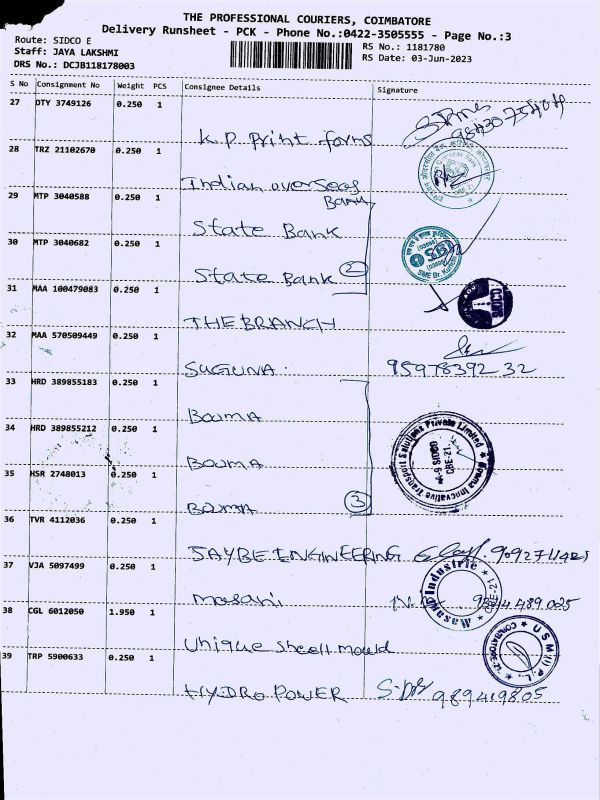 THE PROFESSIONAL COURIERS, COIMBATORE
Delivery Runsheet - PCK - Phone No.:0422-3505555 - Page No.:3
Route: SIDCO E
Staff: JAYA LAKSHMI
DRS No.: DCJB118178003
RS No.: 1181780
RS Date: 03-Jun-2023
S No Consignment No Weight PCS Consignee Details Signature
27 DTY 3749126 0.250 1
K.P. Print forms
28 TRZ 21102670 0.250 1
Indian overseas
Bank
29 MTP 3040588 0.250 1
State Bank
30 MTP 3040682 0.250 1
State Bank 2
SBI
31 MAA 100479083 0.250 1
THE BRANCH
SIDCO
32 MAA 570509449 0.250 1
SUGUNA. 9597839232
33 HRD 389855183 0.250 1
Bouma
34 HRD 389855212 0.250 1
Bouma
Bouma Innovative Transport Solutions Private Limited
A-9 SIDCO
CBE-21
35 HSR 2748013 0.250 1
Bouma 3
36 TVR 4112036 0.250 1
JAYBE ENGINEERING
37 VJA 5097499 0.250 1
masani
Masani Industrie
CBE-21
38 CGL 6012050 1.950 1
Unique Shell mould
USM(I)P.L.
COIMBATORE-21
39 TRP 5900633 0.250 1
HYDRO POWER 989419805